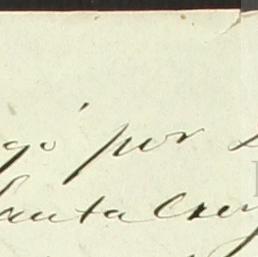 go por
Santa Cruz